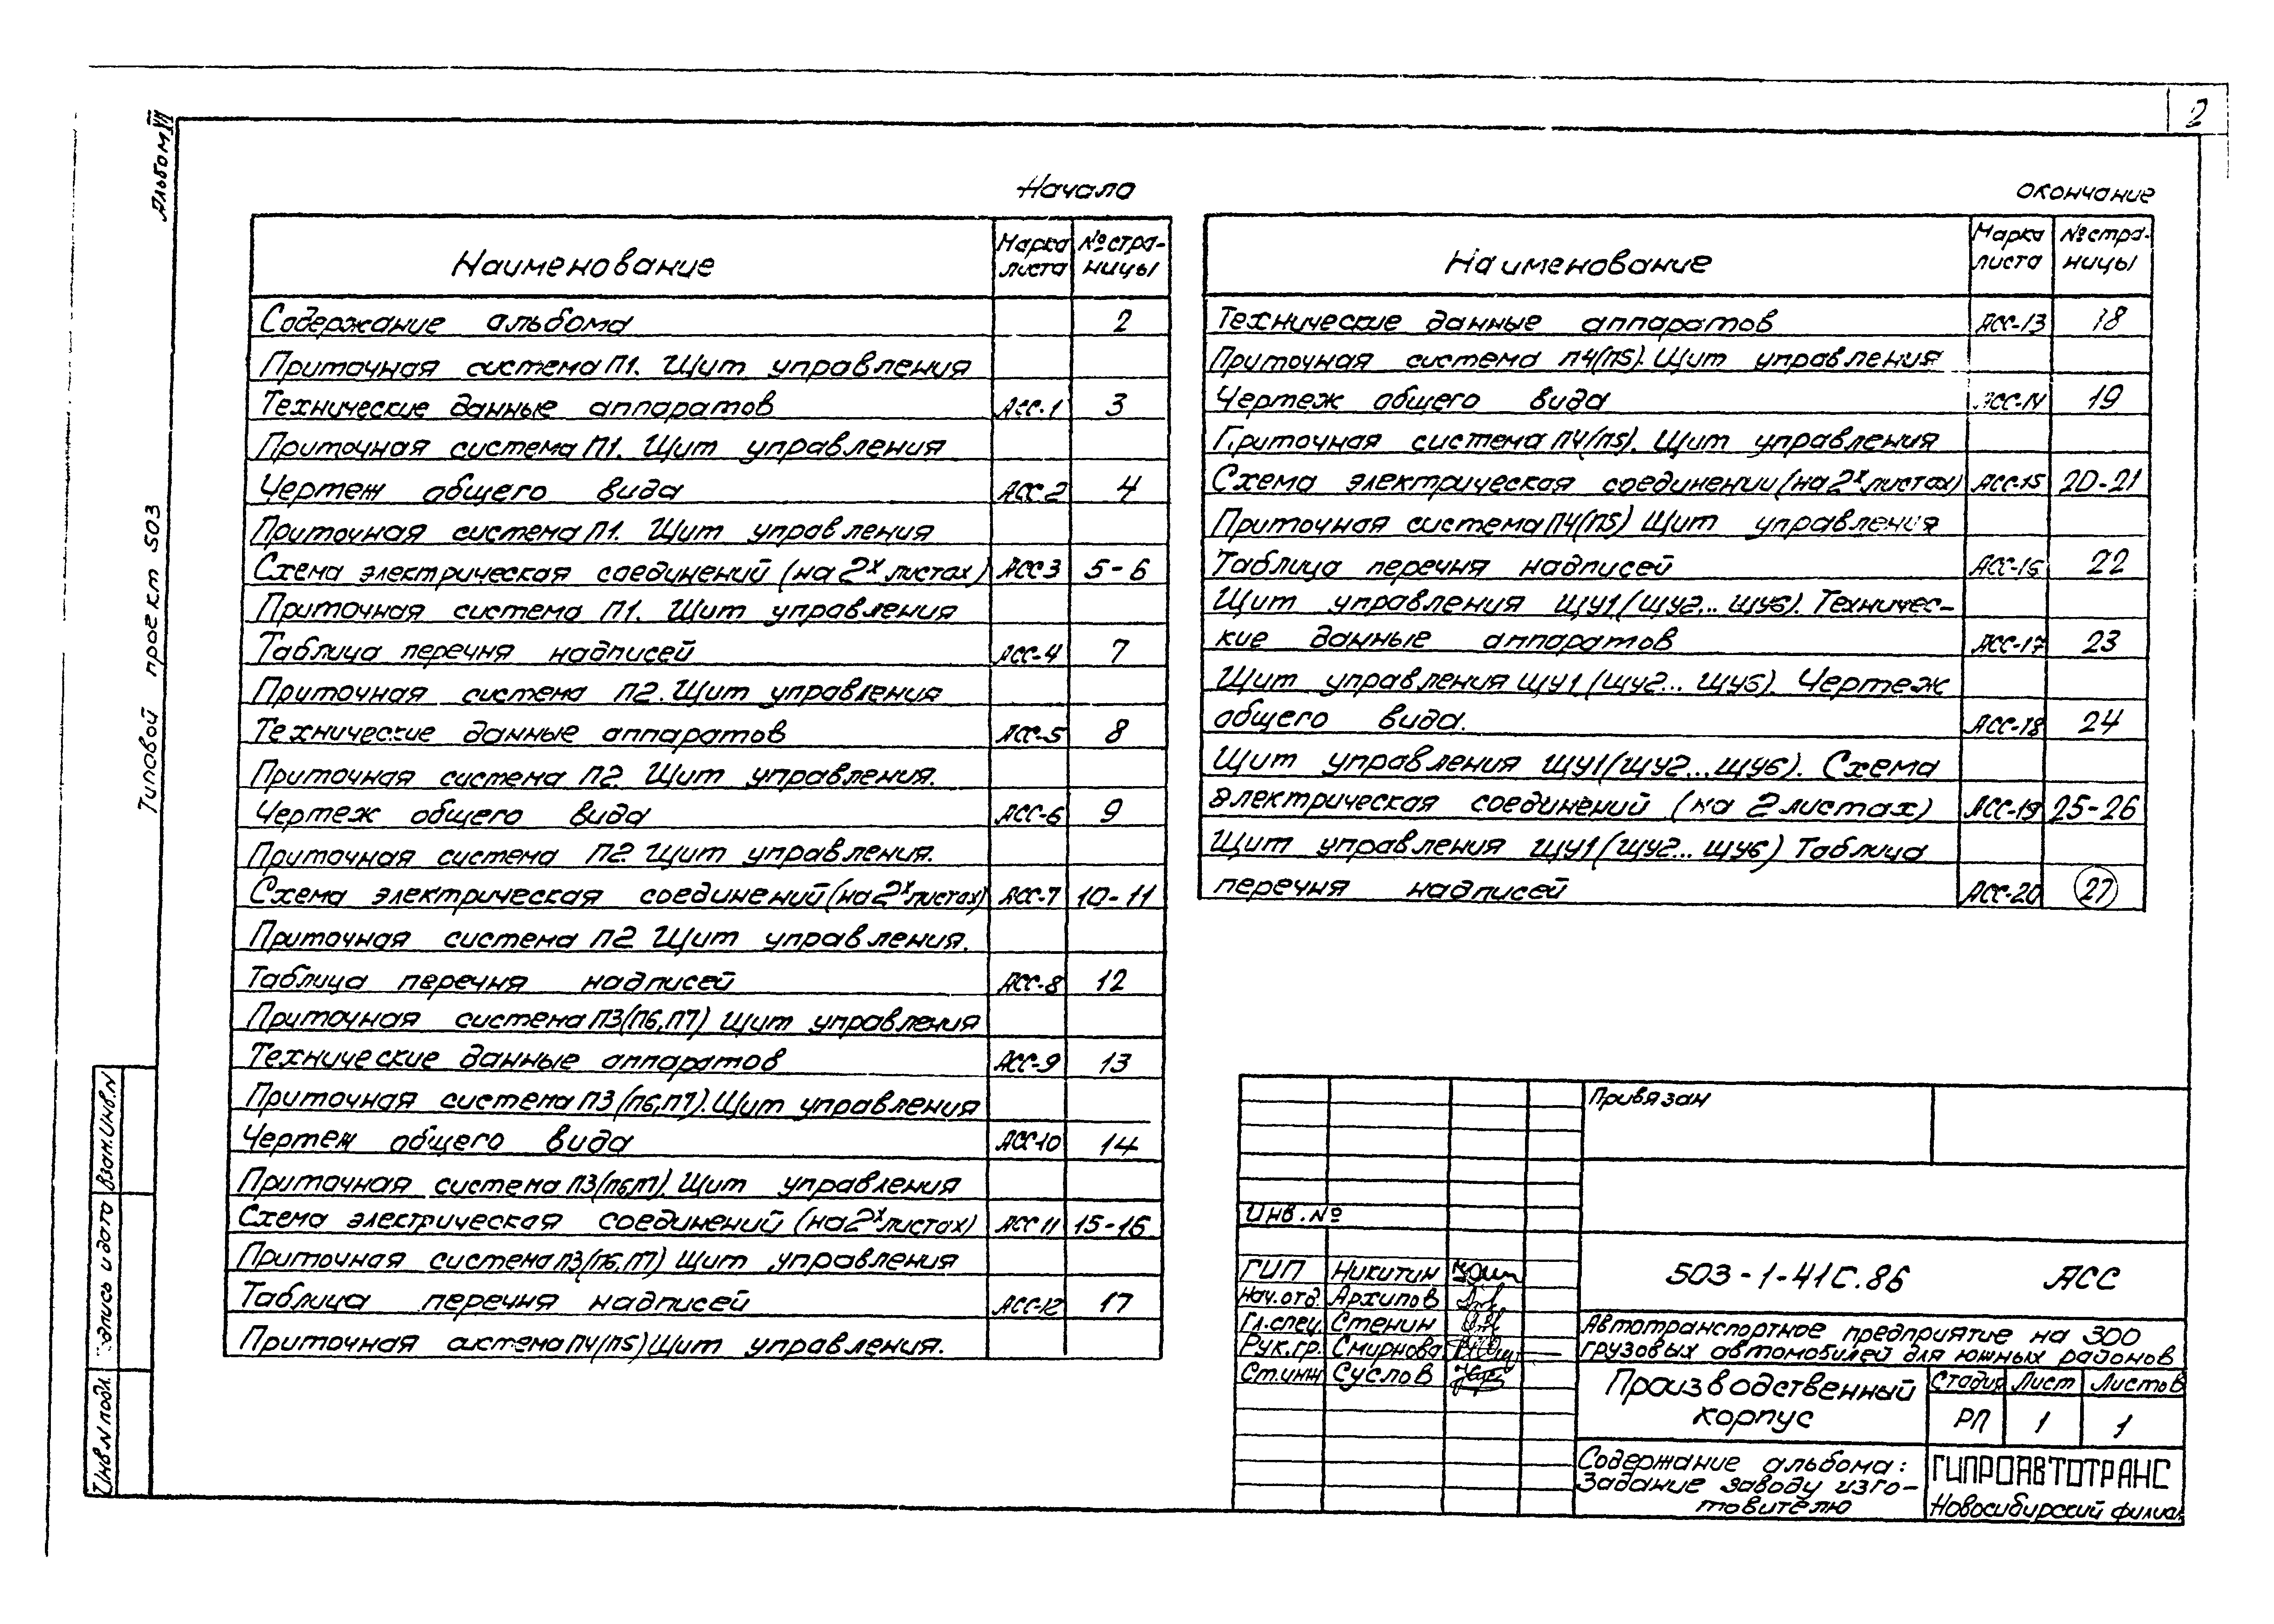 2
Альбом VII
Типовой проект 503
Начало
Наименование
Марка листа
№ стра-ницы
Содержание альбома 2
Приточная система П1. Щит управления
Технические данные аппаратов АСС-1 3
Приточная система П1. Щит управления
Чертеж общего вида АСС-2 4
Приточная система П1. Щит управления
Схема электрическая соединений (на 2х листах) АСС 3 5-6
Приточная система П1. Щит управления
Таблица перечня надписей АСС-4 7
Приточная система П2. Щит управления
Технические данные аппаратов АСС-5 8
Приточная система П2. Щит управления.
Чертеж общего вида АСС-6 9
Приточная система П2 Щит управления.
Схема электрическая соединений (на 2х листах) АСС-7 10-11
Приточная система П2 Щит управления.
Таблица перечня надписей АСС-8 12
Приточная система П3(П6,П7) Щит управления
Технические данные аппаратов АСС-9 13
Приточная система П3(П6,П7). Щит управления
Чертеж общего вида АСС-10 14
Приточная система П3(П6,П7). Щит управления
Схема электрическая соединений (на 2х листах) АСС 11 15-16
Приточная система П3(П6,П7) Щит управления
Таблица перечня надписей АСС-12 17
Приточная система П4(П5) Щит управления.
окончание
Наименование
Марка листа
№ стра-ницы
Технические данные аппаратов АСС-13 18
Приточная система П4(П5). Щит управления
Чертеж общего вида АСС-14 19
Приточная система П4(П5). Щит управления
Схема электрическая соединении (на 2х листах) АСС-15 20-21
Приточная система П4(П5) Щит управления
Таблица перечня надписей АСС-16 22
Щит управления ЩУ1(ЩУ2... ЩУ6). Техничес-
кие данные аппаратов АСС-17 23
Щит управления ЩУ1(ЩУ2... ЩУ6). Чертеж
общего вида. АСС-18 24
Щит управления ЩУ1(ЩУ2...ЩУ6). Схема
электрическая соединений (на 2 листах) АСС-19 25-26
Щит управления ЩУ1(ЩУ2... ЩУ6) Таблица
перечня надписей АСС-20 27
Привязан
Инв. №
ГИП Никитин
Нач.отд. Архипов
Гл.спец. Стенин
Рук.гр. Смирнова
Ст.инж Суслов
503-1-41С.86 АСС
Автотранспортное предприятие на 300
грузовых автомобилей для южных районов
Производственный
корпус
Стадия Лист Листов
РП 1 1
Содержание альбома:
Задание заводу изго-
товителю
ГИПРОАВТОТРАНС
Новосибирский филиал
Взам.инв.N
Подпись и дата
Инв.N подл.